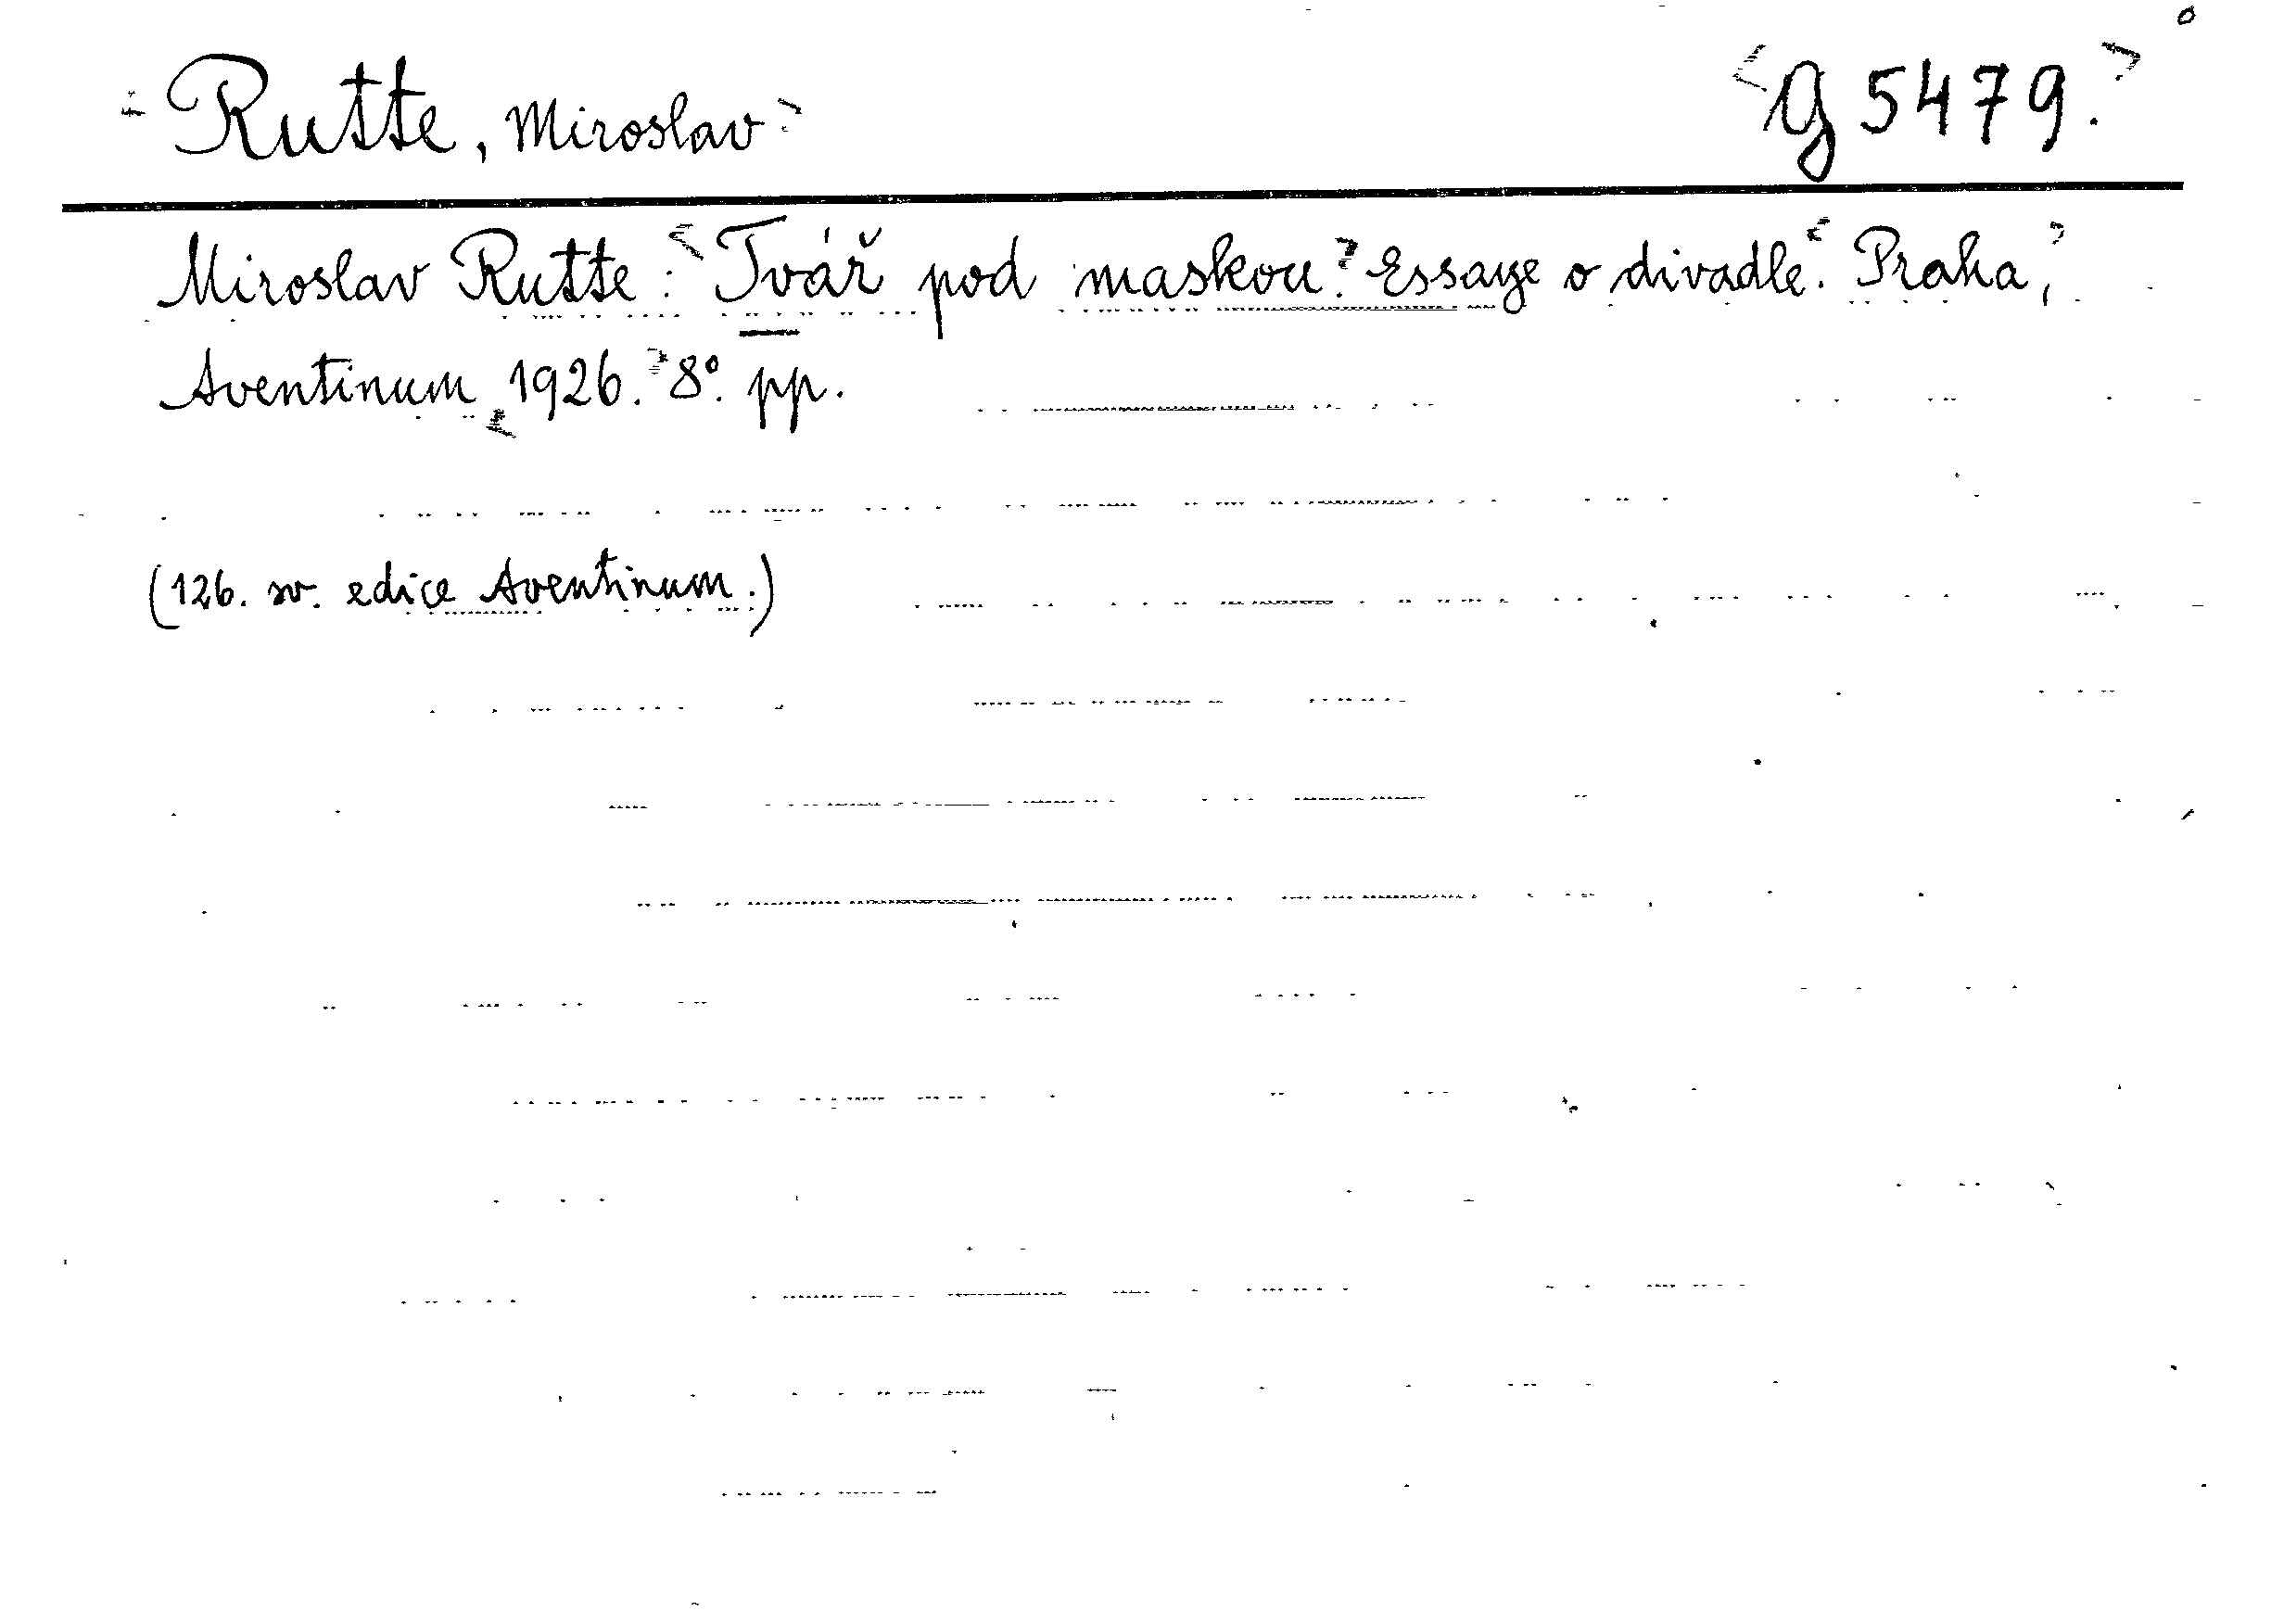 Rutte, Miroslav
g 5479.
Miroslav Rutte: Tvář pod maskou. Essaye o divadle. Praha,
Aventinum 1926. 8°. pp.
(126. sv. edice Aventinum.)